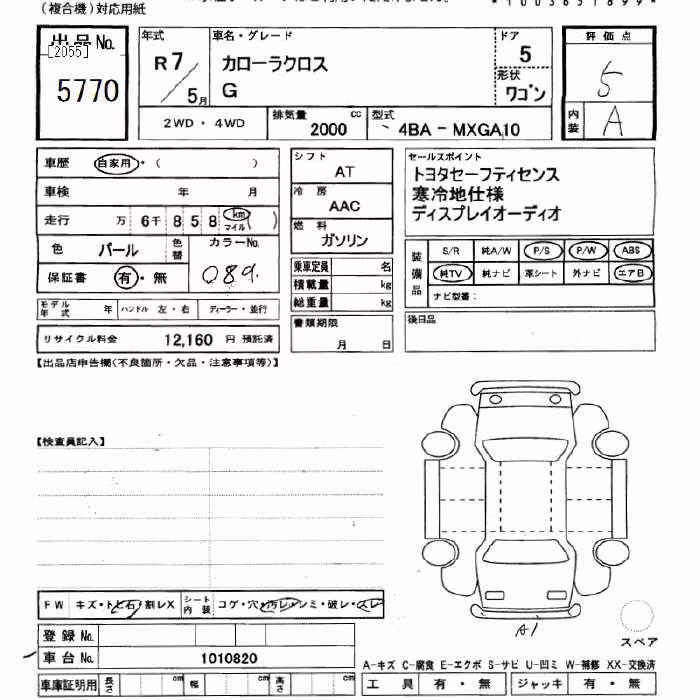 (複合機)対応用紙
出品No.
[2055]
5770
年式
R7
5月
車名・グレード
カローラクロス
G
ドア
5
形状
ワゴン
評価点
5
内装
A
2WD・4WD
排気量
cc
2000
型式
4BA - MXGA10
車歴
自家用・( )
車検 年 月
走行 万 6千 8 5 8 km マイル ( )
色 パール 色替 カラーNo.
保証書 有・無 089
モデル年式 年 ハンドル 左・右 ディーラー・並行
リサイクル料金 12,160 円 預託済
シフト
AT
冷房
AAC
燃料
ガソリン
乗車定員 名
積載量 kg
総重量 kg
書類期限
月 日
セールスポイント
トヨタセーフティセンス
寒冷地仕様
ディスプレイオーディオ
装備品
S/R 純A/W P/S P/W ABS
純TV 純ナビ 革シート 外ナビ エアB
ナビ型番:
後日品
【出品店申告欄(不良箇所・欠品・注意事項等)】
【検査員記入】
FW キズ・トビ石・割レX シート内装 コゲ・穴・汚レ・シミ・破レ・スレ
登録No.
車台No. 1010820
車庫証明用 長さ cm 幅 cm 高さ cm
A1
スペア
A-キズ C-腐食 E-エクボ S-サビ U-凹ミ W-補修 XX-交換済
工具 有・無 ジャッキ 有・無